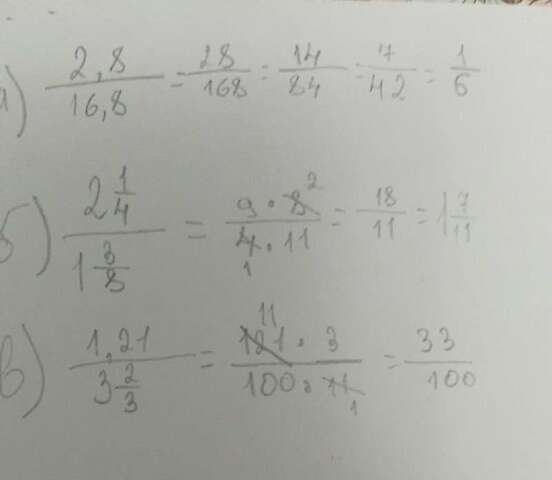 а) 2,8/16,8 = 28/168 = 14/84 = 7/42 = 1/6
б) 2 1/4 / 1 3/8 = 9 · 8 2 / 4 · 11 1 = 18/11 = 1 7/11
в) 1,21 / 3 2/3 = 11 121 · 3 / 100 · 11 1 = 33/100